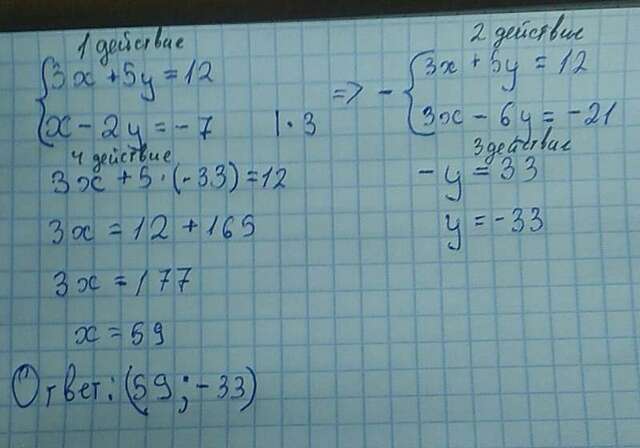 1 действие
3x + 5y = 12
x - 2y = -7 | · 3
=> -
2 действие
3x + 5y = 12
3x - 6y = -21
3 действие
-y = 33
y = -33
4 действие
3x + 5 · (-33) = 12
3x = 12 + 165
3x = 177
x = 59
Ответ: (59; -33)